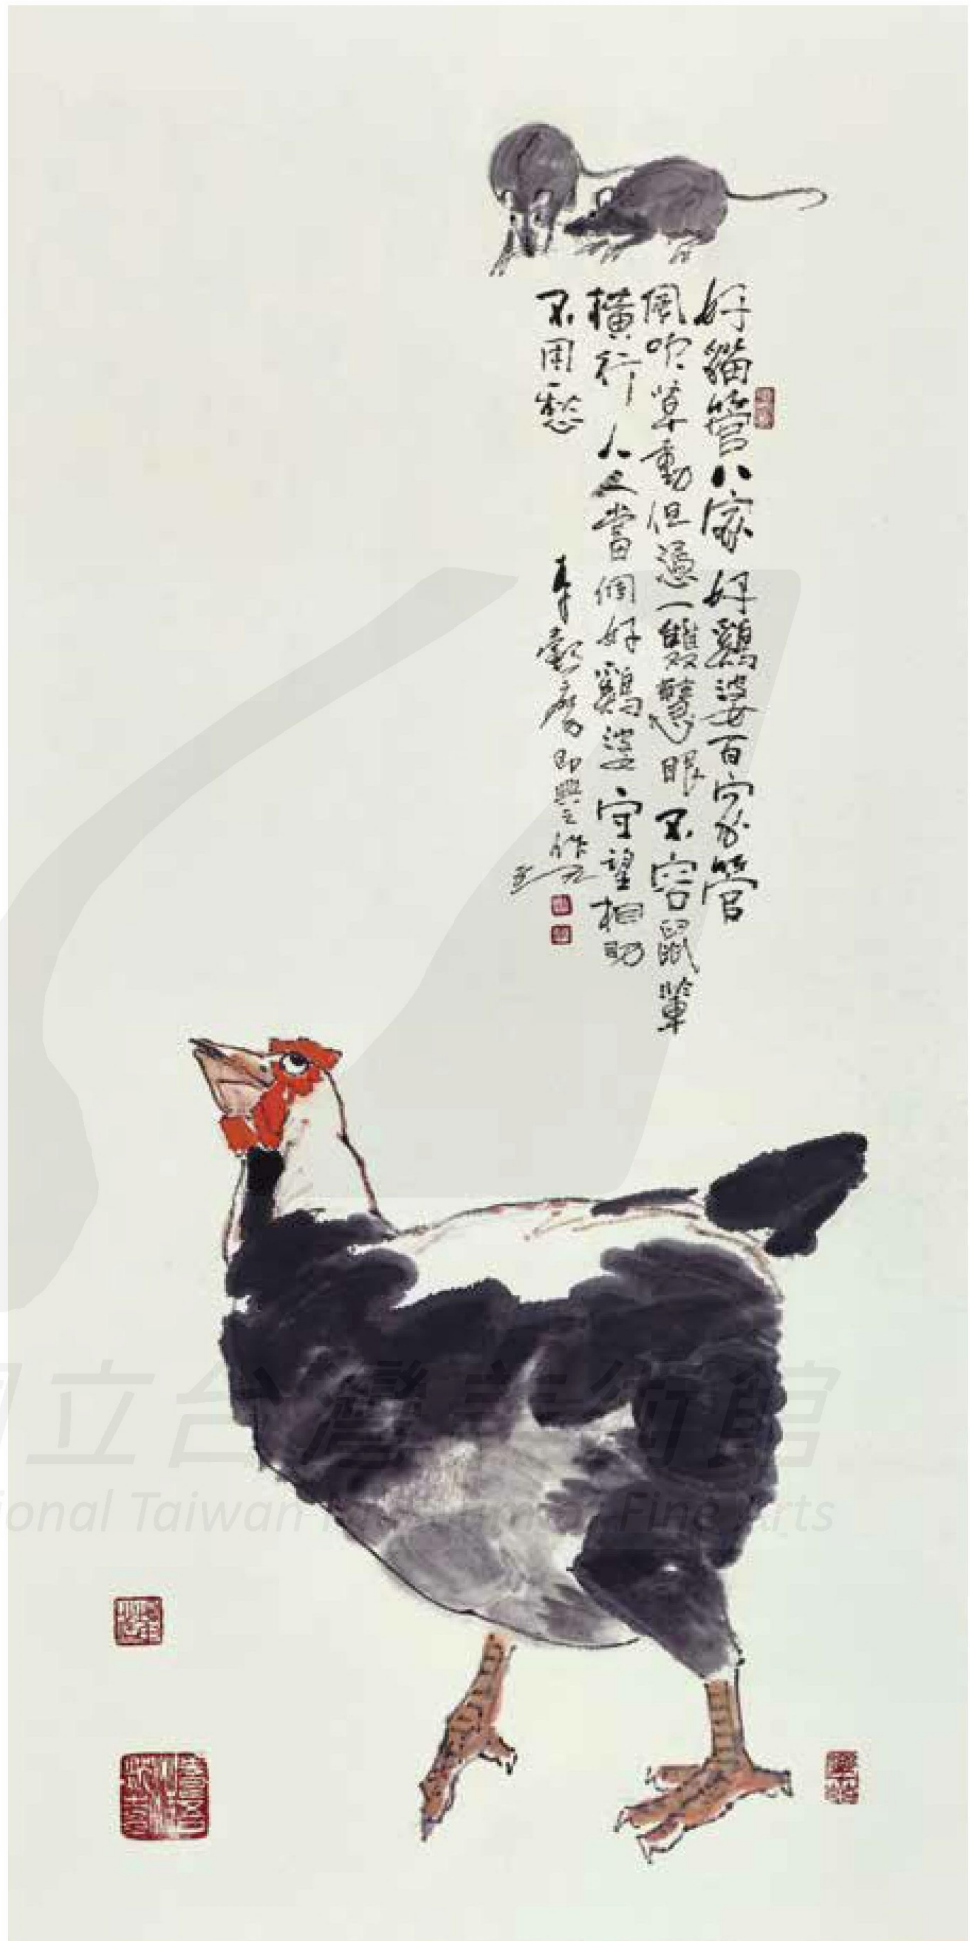 好貓管八家好鷄婆百家管
風吹草動但憑一雙慧眼不容鼠輩
橫行人人當個好鷄婆守望相助
不用愁
即興之作
國立台灣美術館
National Taiwan Museum of Fine Arts